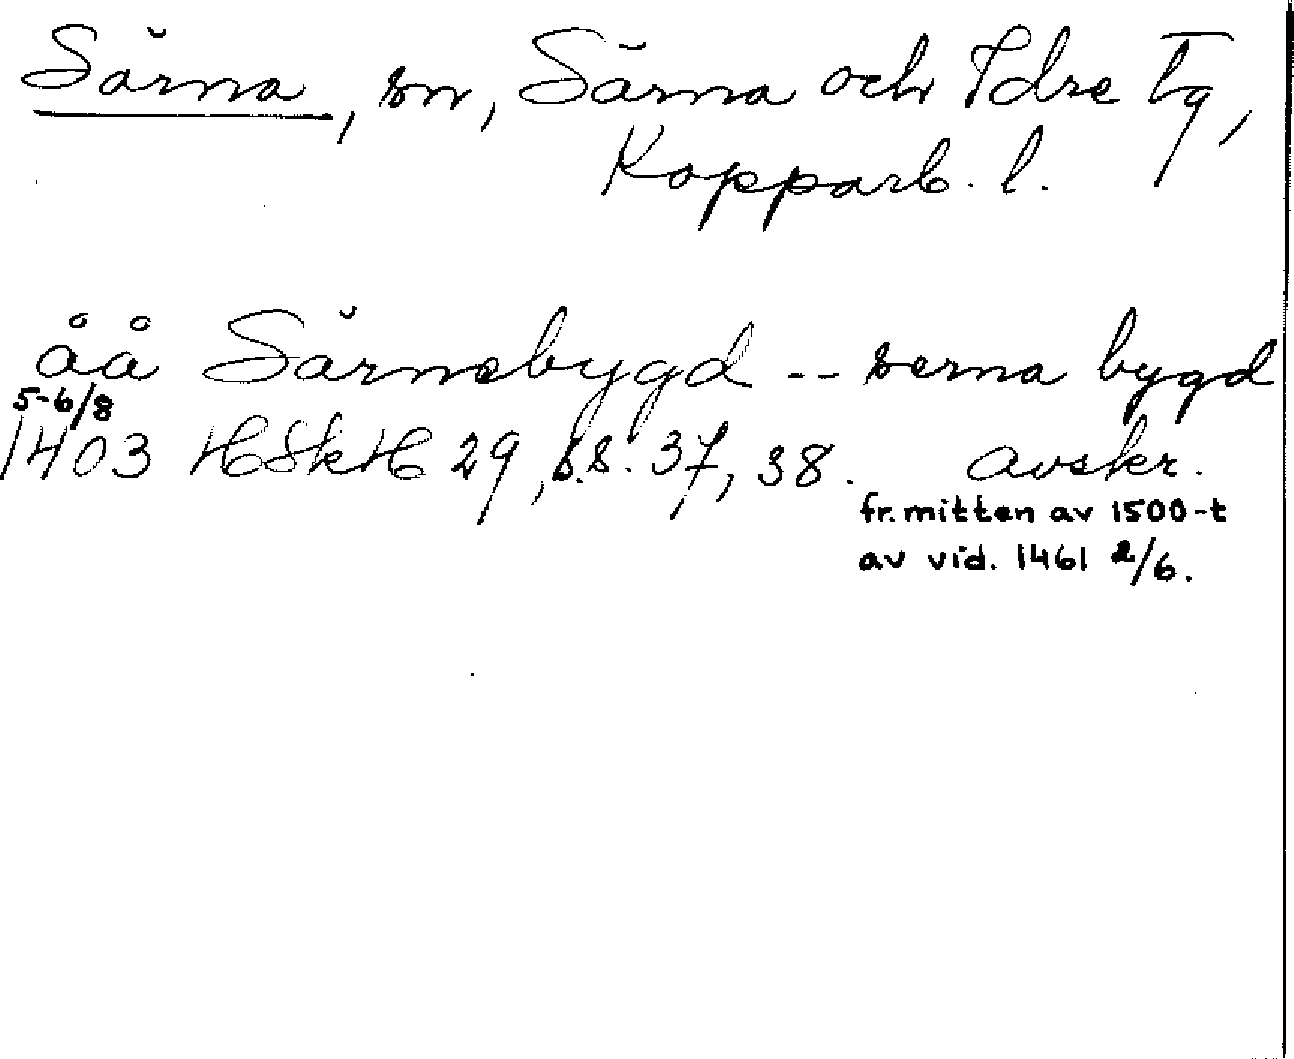 Särna, sn, Särna och Idre tg,
Kopparb. l.
åå Särnebygd -- serna bygd
5-6/8
1403 HSkH 29, s.s. 37, 38. avskr.
fr. mitten av 1500-t
av vid. 1461 2/6.